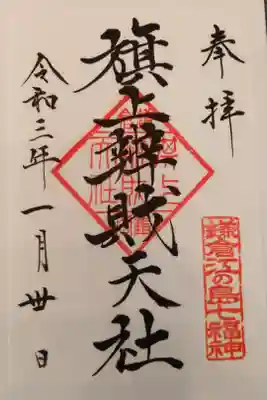 奉拝
旗上辨財天社
鎌倉江の島七福神
令和三年一月卅日